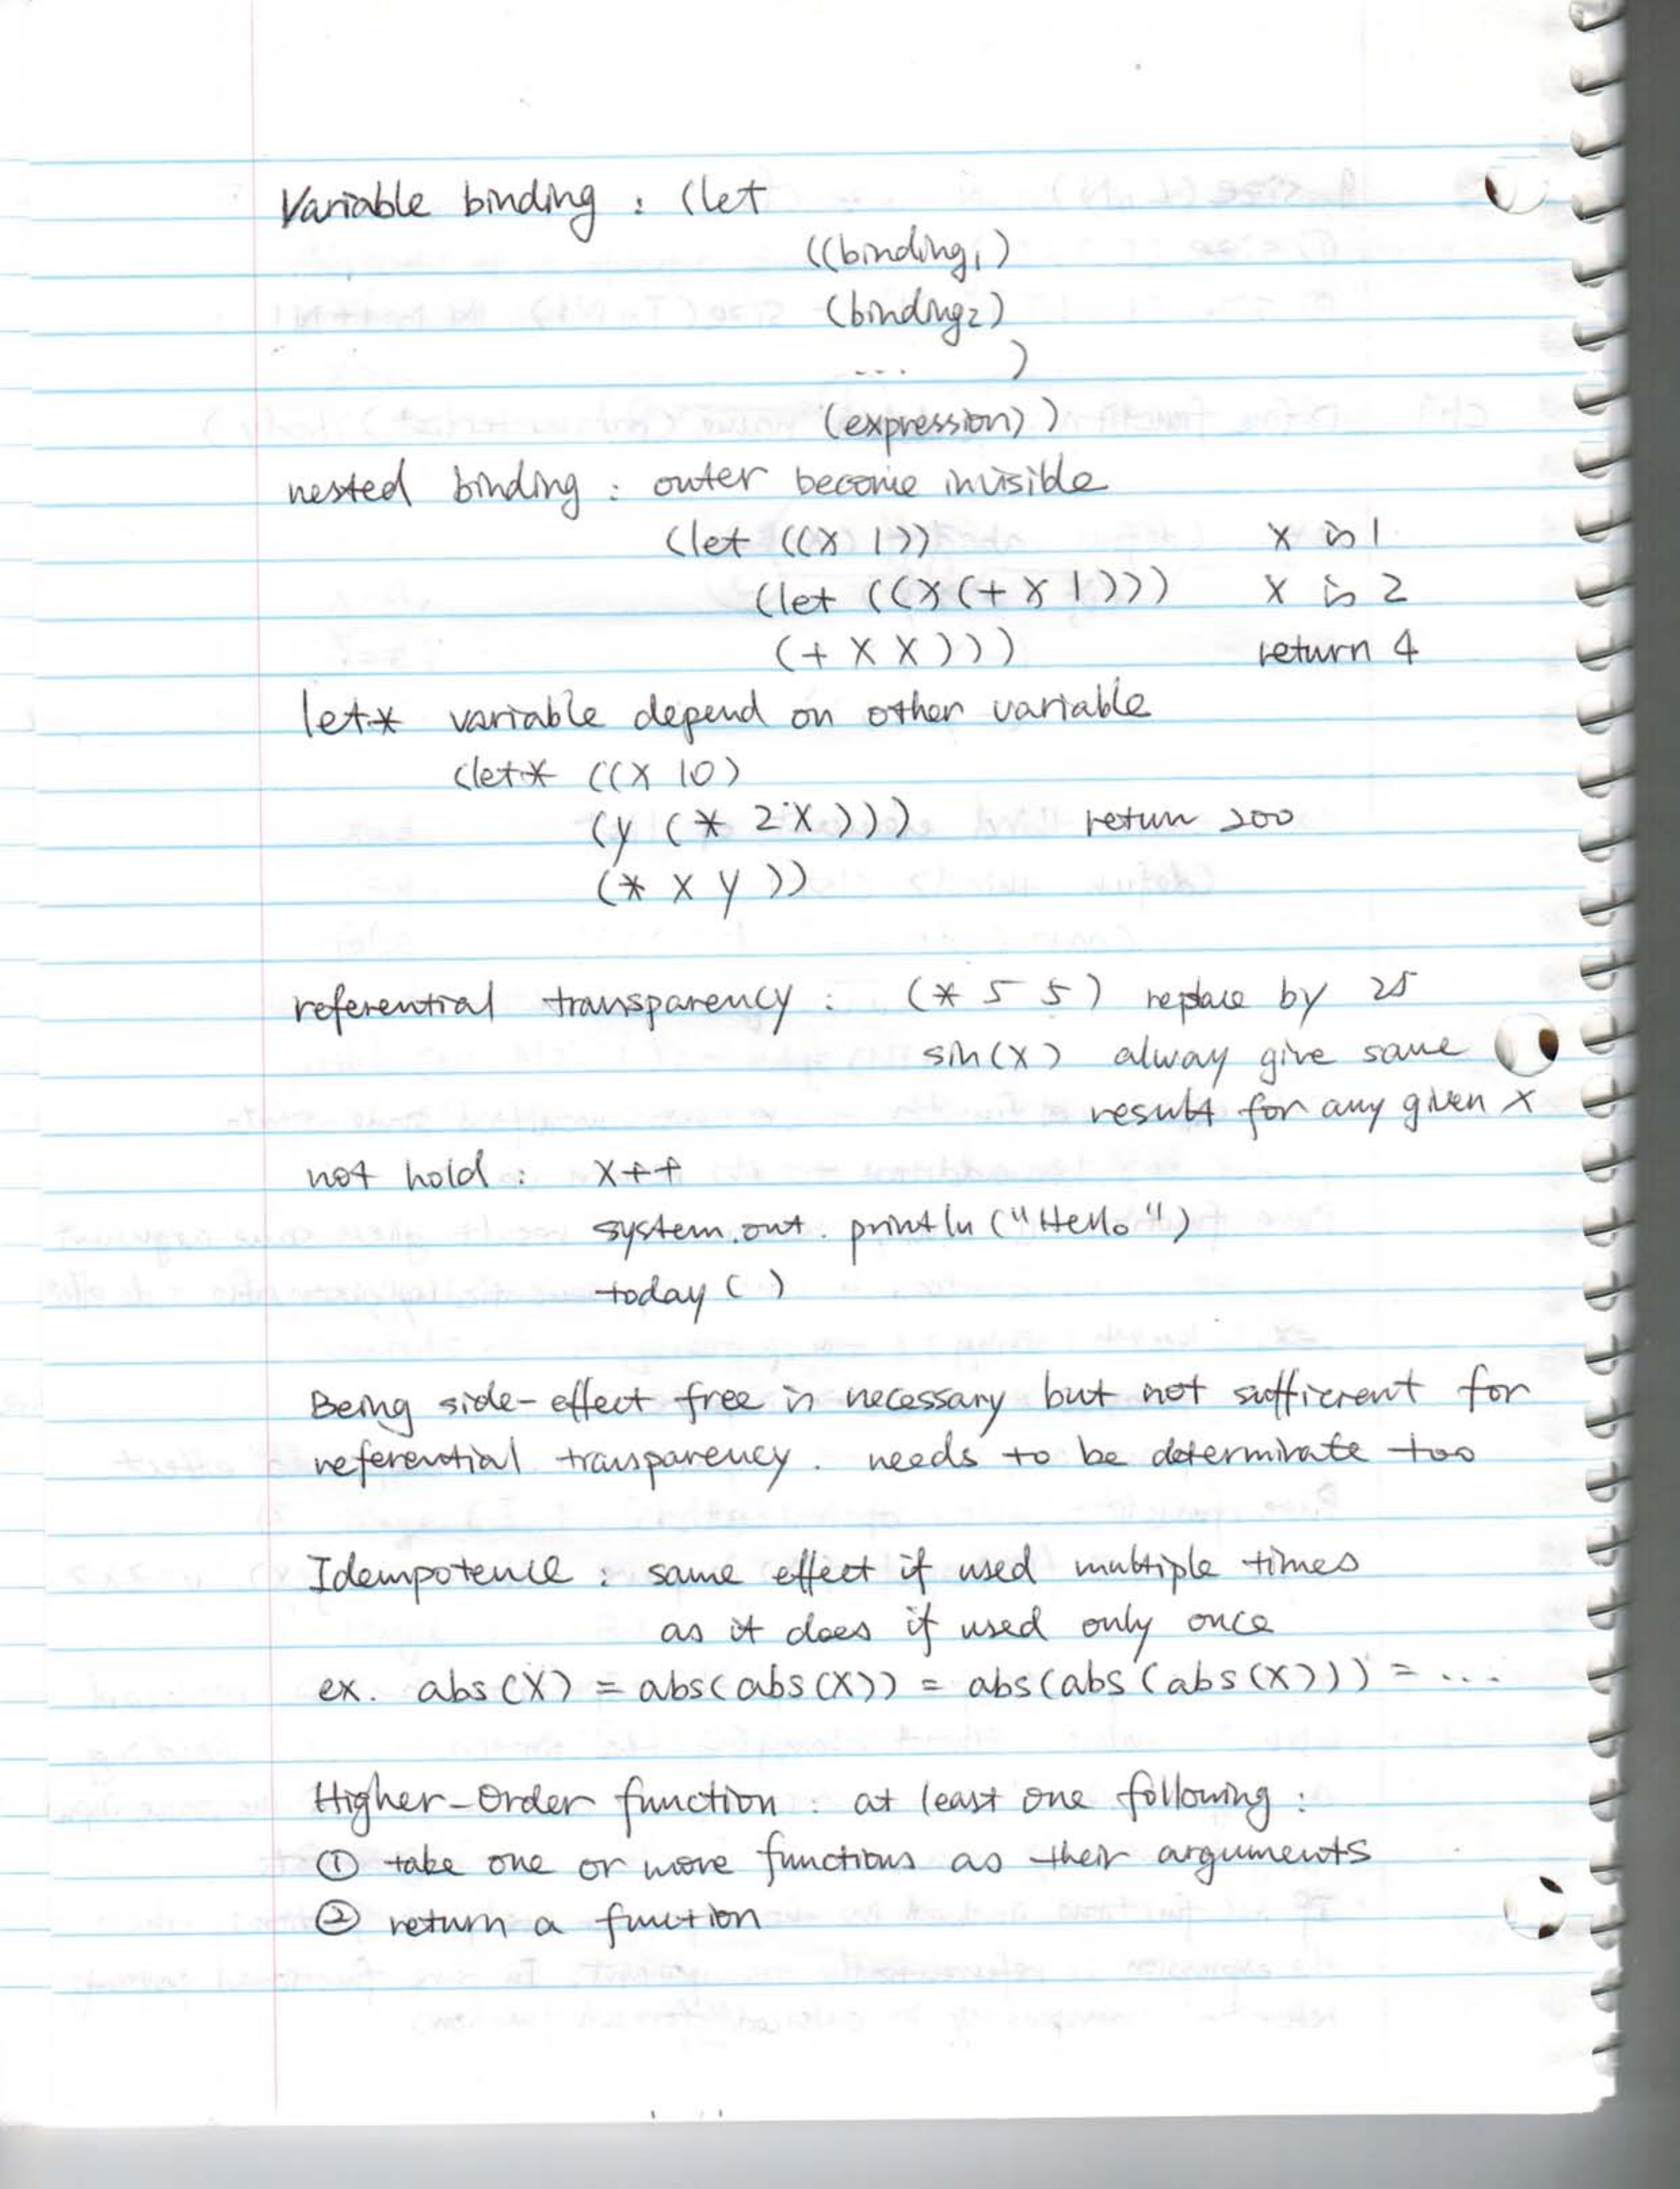 Variable binding : (let
((binding1)
(binding2)
... )
(expression))
nested binding : outer become invisible
(let ((x 1)) x is 1
(let ((x (+ x 1))) x is 2
(+ x x))) return 4
let* variable depend on other variable
(let* ((x 10)
(y (* 2 x))) return 200
(* x y ))
referential transparency : (* 5 5) replace by 25
sin(x) alway give same
result for any given x
not hold : x++
system.out.println("Hello")
today ( )
Being side-effect free is necessary but not sufficient for
referential transparency. needs to be determinate too
Idempotence : same effect if used multiple times
as it does if used only once
ex. abs(x) = abs(abs(x)) = abs(abs(abs(x))) = ...
Higher-Order function : at least one following :
① take one or more functions as their arguments
② return a function